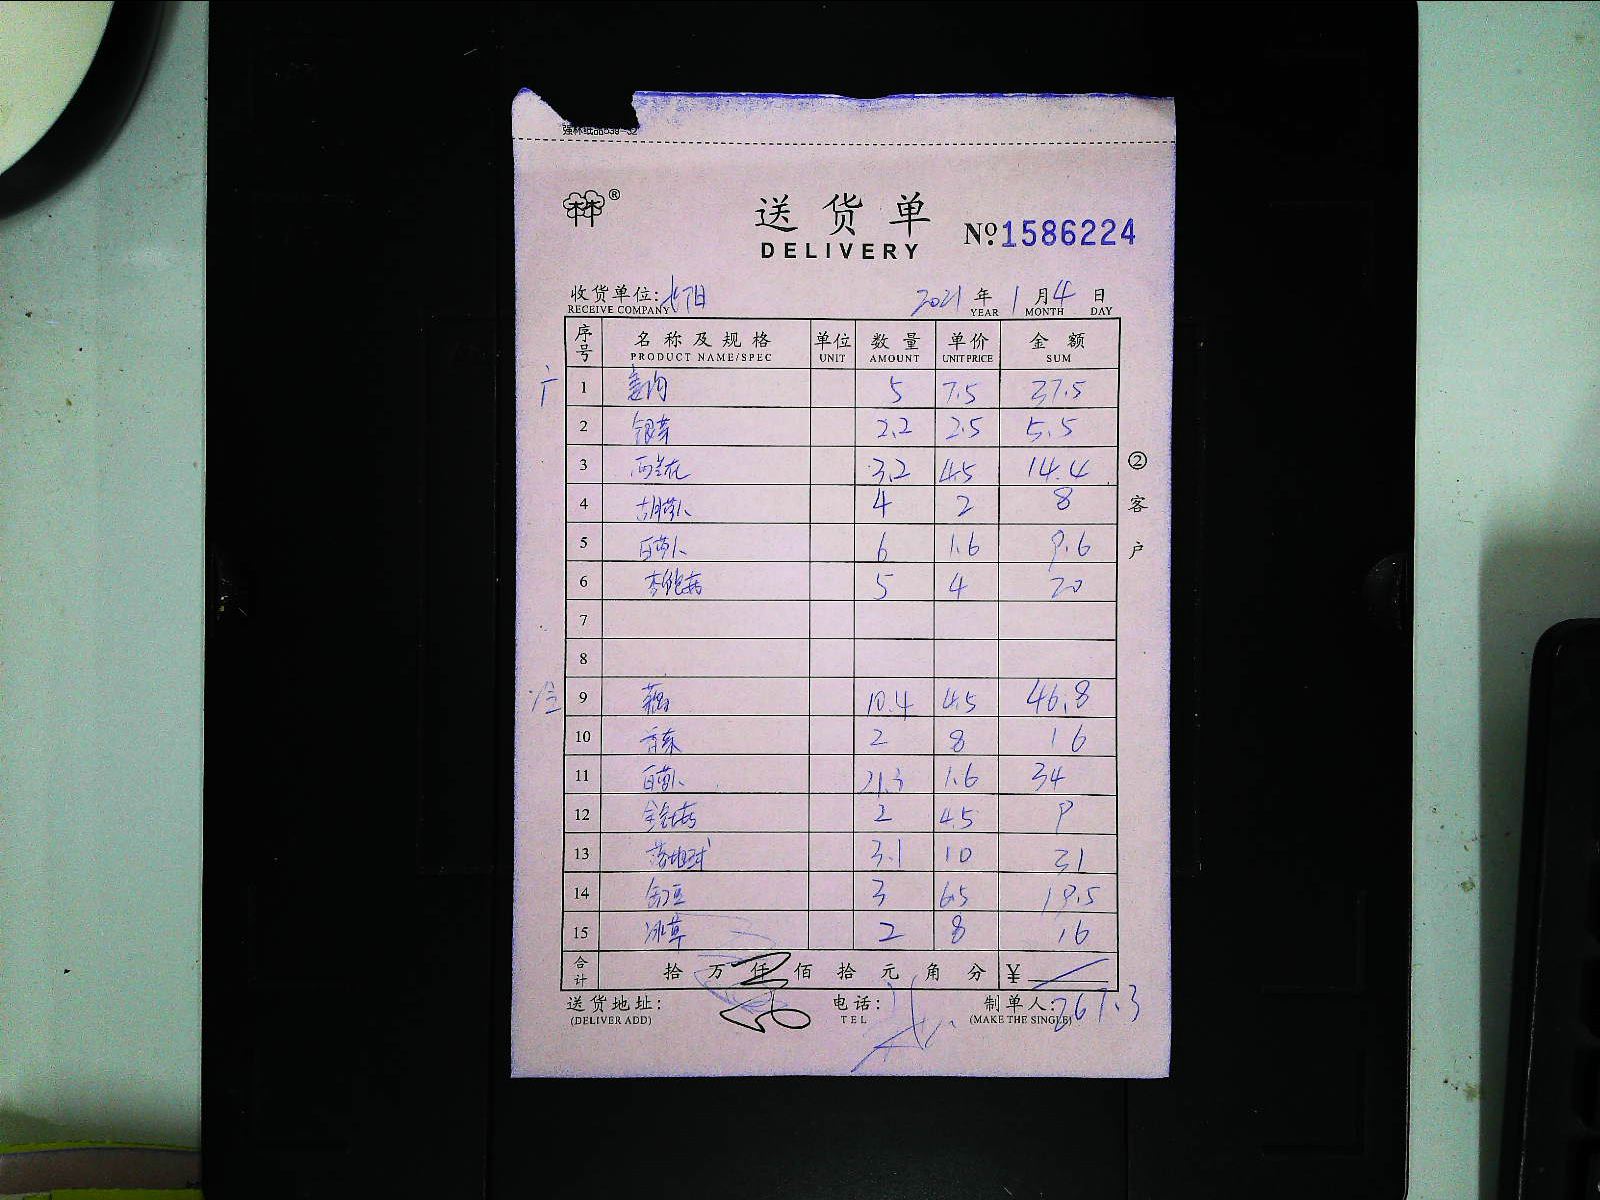 送货单
DELIVERY
№ 1586224
收货单位:
RECEIVE COMPANY
2021 年 1 月 4 日
YEAR MONTH DAY
序号 名称及规格 单位 数量 单价 金额
PRODUCT NAME/SPEC UNIT AMOUNT UNIT PRICE SUM
1 姜肉 5 7.5 37.5
2 银芽 2.2 2.5 5.5
3 西兰花 3.2 4.5 14.4
4 胡萝卜 4 2 8
5 白萝卜 6 1.6 9.6
6 杏鲍菇 5 4 20
7
8
冷 9 藕 10.4 4.5 46.8
10 2 8 16
11 白萝卜 21.3 1.6 34
12 金针菇 2 4.5 9
13 3.1 10 31
14 3 6.5 19.5
15 冰草 2 8 16
合计 拾 万 仟 佰 拾 元 角 分 ¥
267.3
送货地址: 电话: 制单人:
(DELIVER ADD) TEL (MAKE THE SINGLE)
② 客户